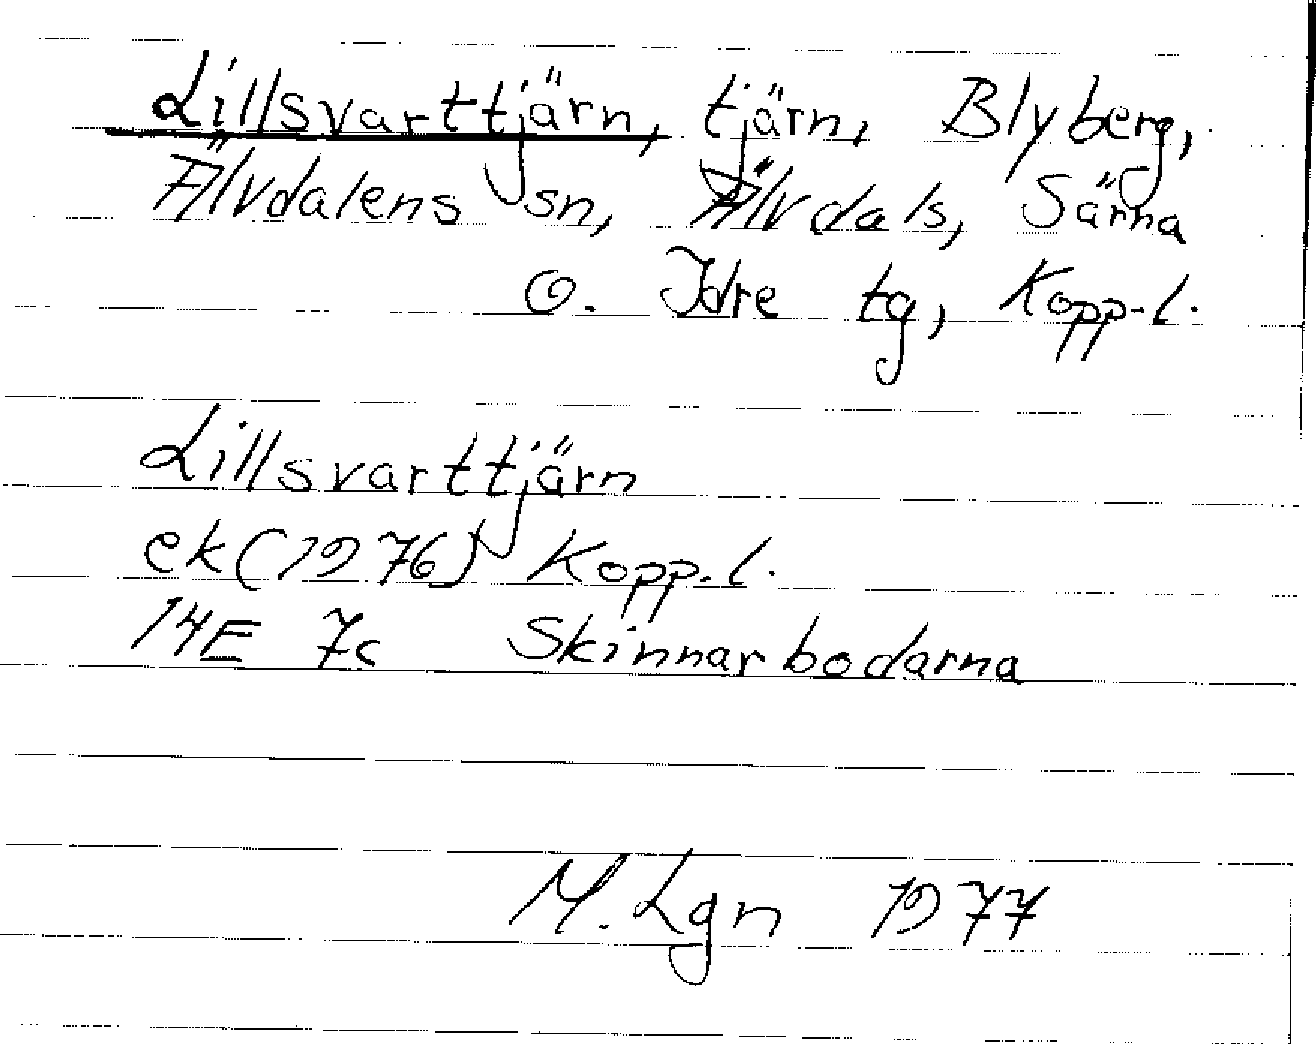 Lillsvarttjärn, tjärn, Blyberg,
Älvdalens sn, Älvdals, Särna
o. Idre tg, Kopp.l.
Lillsvarttjärn
ek(1976) Kopp.l.
14E 7c Skinnarbodarna
M. Lgn 1977